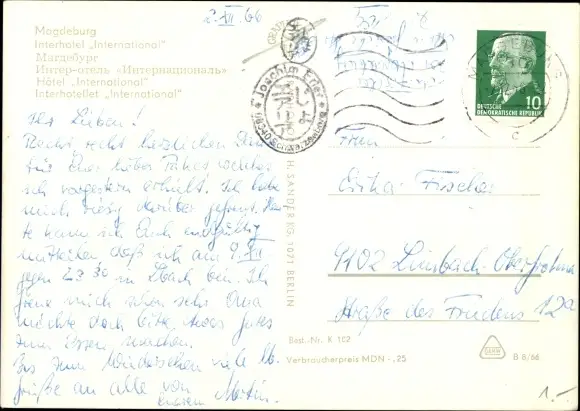 Magdeburg
Interhotel „International"
Магдебург
Интер-отель «Интернациональ»
Hôtel „International"
Interhotellet „International"
2.XII.66
Ihr Lieben!
Recht recht herzlichen Dank
für Euer liebes Paket welches
ich vorgestern erhielt. Ich habe
mich riesig darüber gefreut. Heu-
te kann ich Euch endgültig
mitteilen, daß ich am 9.XII
gegen 23 30 in Lbach bin. Ich
freue mich schon sehr. Oma
möchte doch bitte etwas gutes
zum Essen machen.
Bis zum Wiedersehen viele lb.
Grüße an alle von
Eurem Martin.
Joachim Erler
H. SANDER KG, 1071 BERLIN
DEUTSCHE
DEMOKRATISCHE REPUBLIK
10
Frau
Erika Fischer
9102 Limbach-Oberfrohna
Straße des Friedens 12a
Best.-Nr. K 102
Verbraucherpreis MDN -,25
B 8/66
1.-